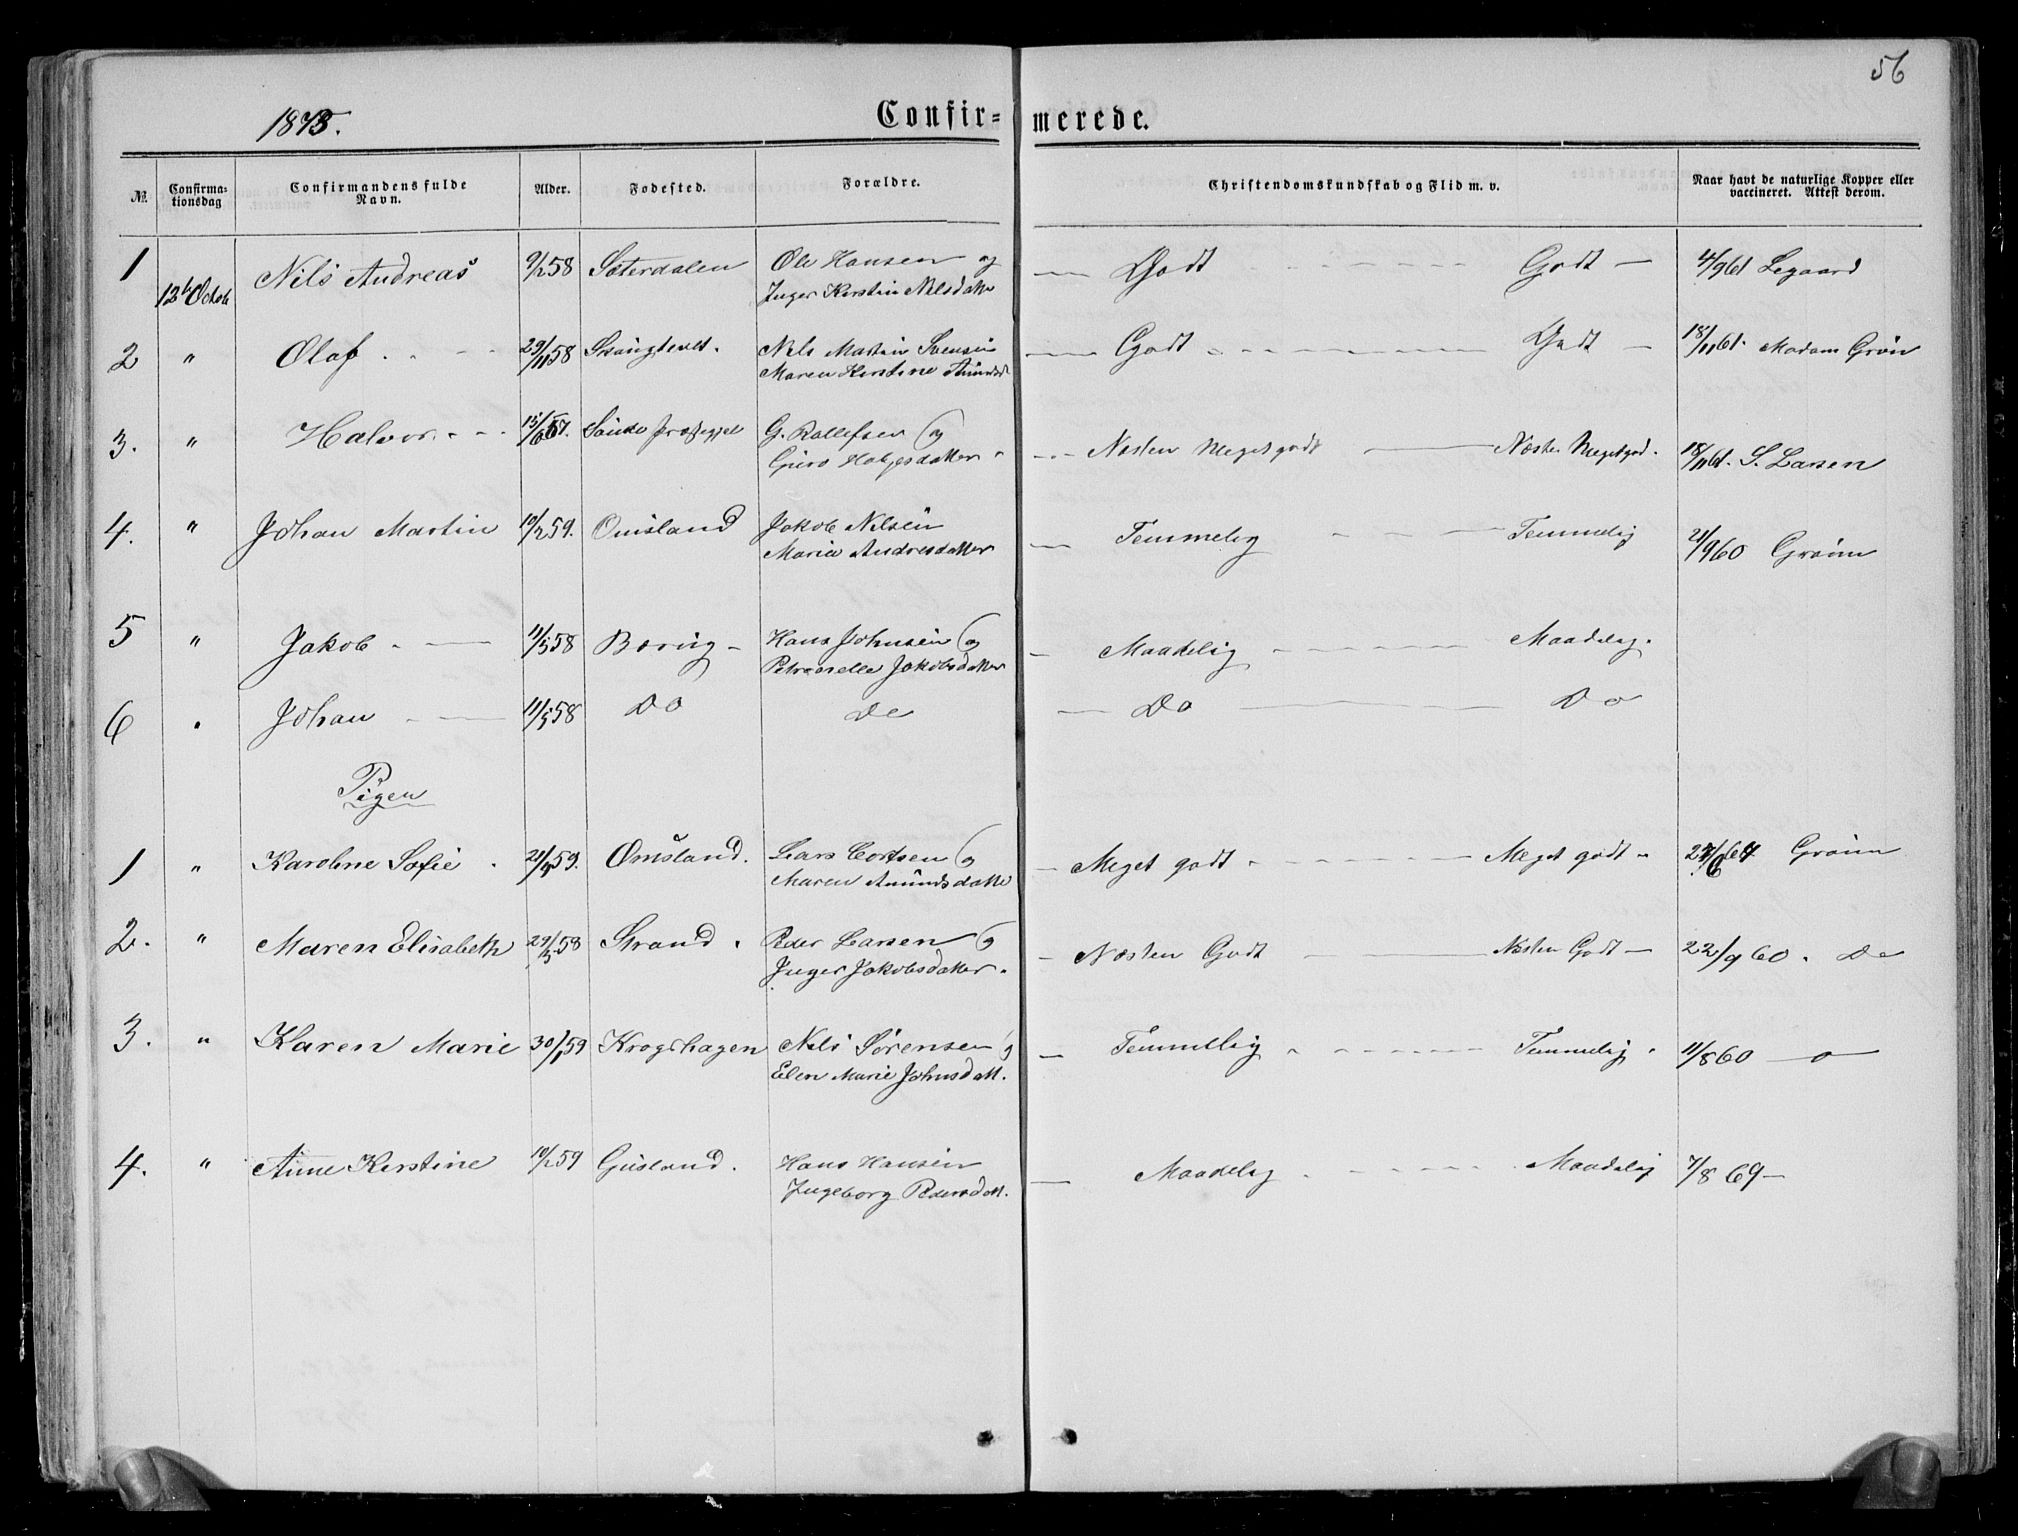 56
1873.
Confir- merede.
№ Confirma-tionsdag Confirmandens fulde Navn. Alder. Fodested. Forældre. Christendomskundskab og Flid m. v. Naar havt de naturlige Kopper eller vaccineret. Attest derom.
1 12te Octob Nils Andreas 9/2 58 Sæterdalen Ole Hansen og — Godt - - - Godt — 4/9 61 Legaard
Inger Kirstin Nilsdatter
2 " Olaf . . - - 29/11 58 Nils Martin Svensen — Godt - - - Godt — 18/11 61. Madam Grøn
Maren Kirstine Amundsd
3. " Halvor. - - 57. Sande Præstegjel G. Rollefsen og - - - Næsten Meget godt — Næsten Megetgod. 18/11 61. S. Larsen
Guro
4. " Johan Martin 10/2 59. Omsland Jakob Nilsen — Temmelig - - - Temmelig 21/9 60 Grønn
Maria Andresdatter
5 " Jakob - — 11/5 58 Borug - Hans Johnsen og - Maadelig - — Maadelig.
Petronelle Jakobsdatter
6 " Johan - — 11/5 58 Do Do — Do — Do
Pigen
1 " Karoline Sofie . 21/4 59. Omsland. Lars Cortsen og - Meget godt - - - Meget godt - Grønn
Maren Amundsdatter
2. " Maren Elisabeth 29/3 58 Strand. Peder Larsen og - Næsten Godt — Næsten Godt — 22/9 60. Do
Inger Jakobsdatter.
3. " Karen Marie 30/1 59 Krogshagen Nils Sørensen og — Temmelig - - - Temmelig. 11/8 60 —o—
Elen Marie Johnsdatt.
4. " Anne Kirstine 10/2 59 Gusland. Hans Hansen — Maadelig . - - - Maadelig 7/8 69—
Ingeborg Pedersdatt.